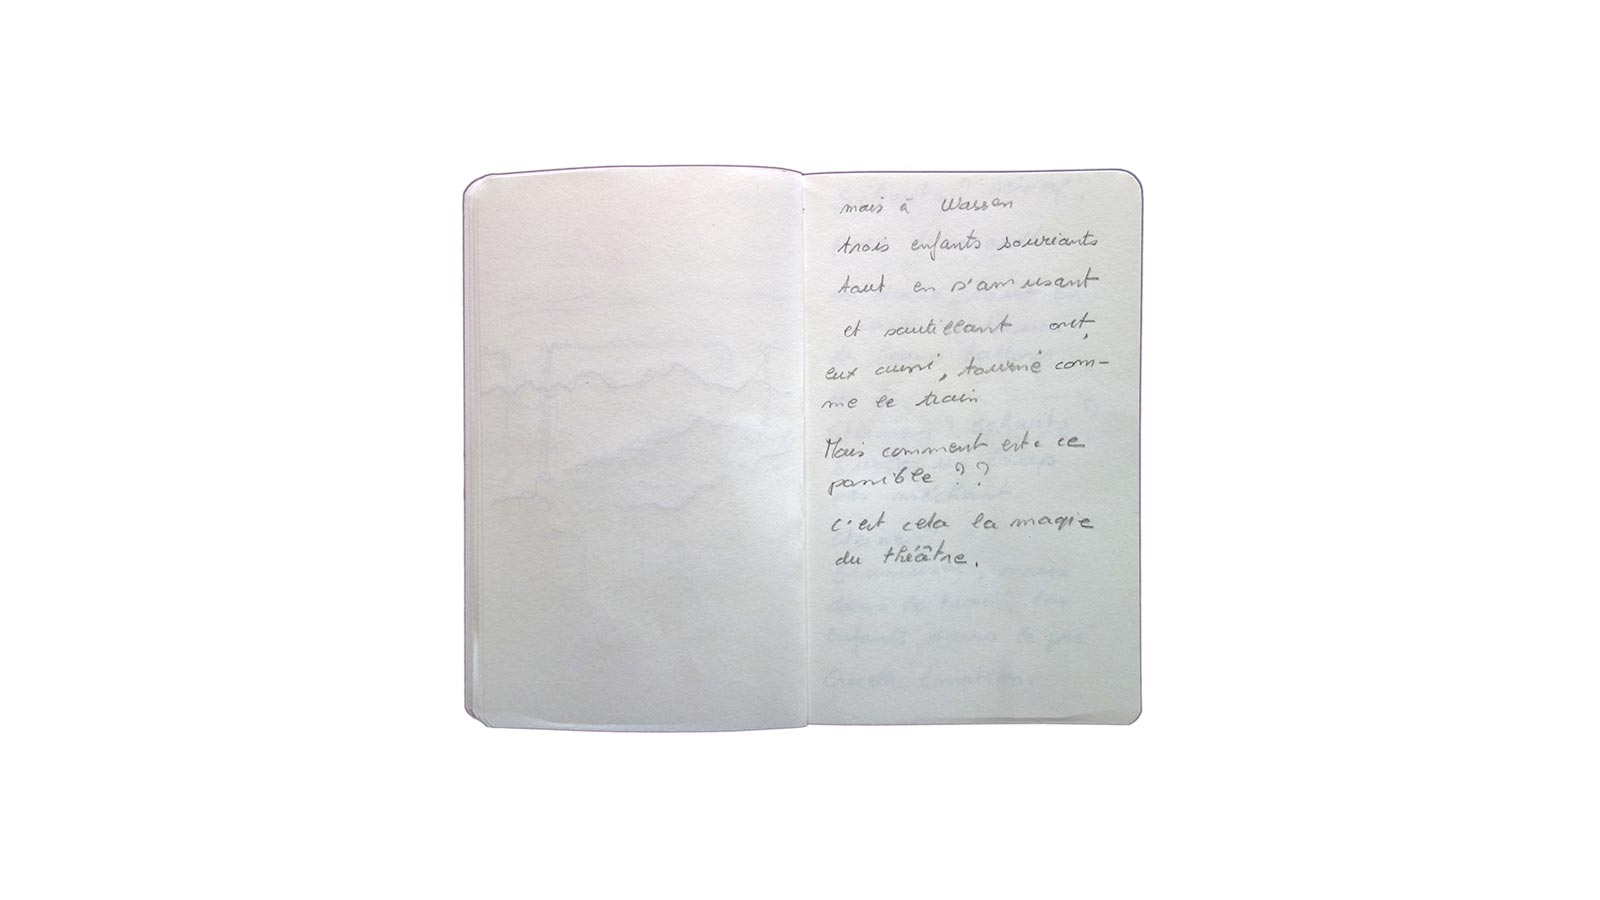 mais à Wassen
trois enfants souriants
tout en s'amusant
et sautillant ont,
eux aussi, tourné com-
me le train
Mais comment est-ce
possible ??
c'est cela la magie
du théâtre.